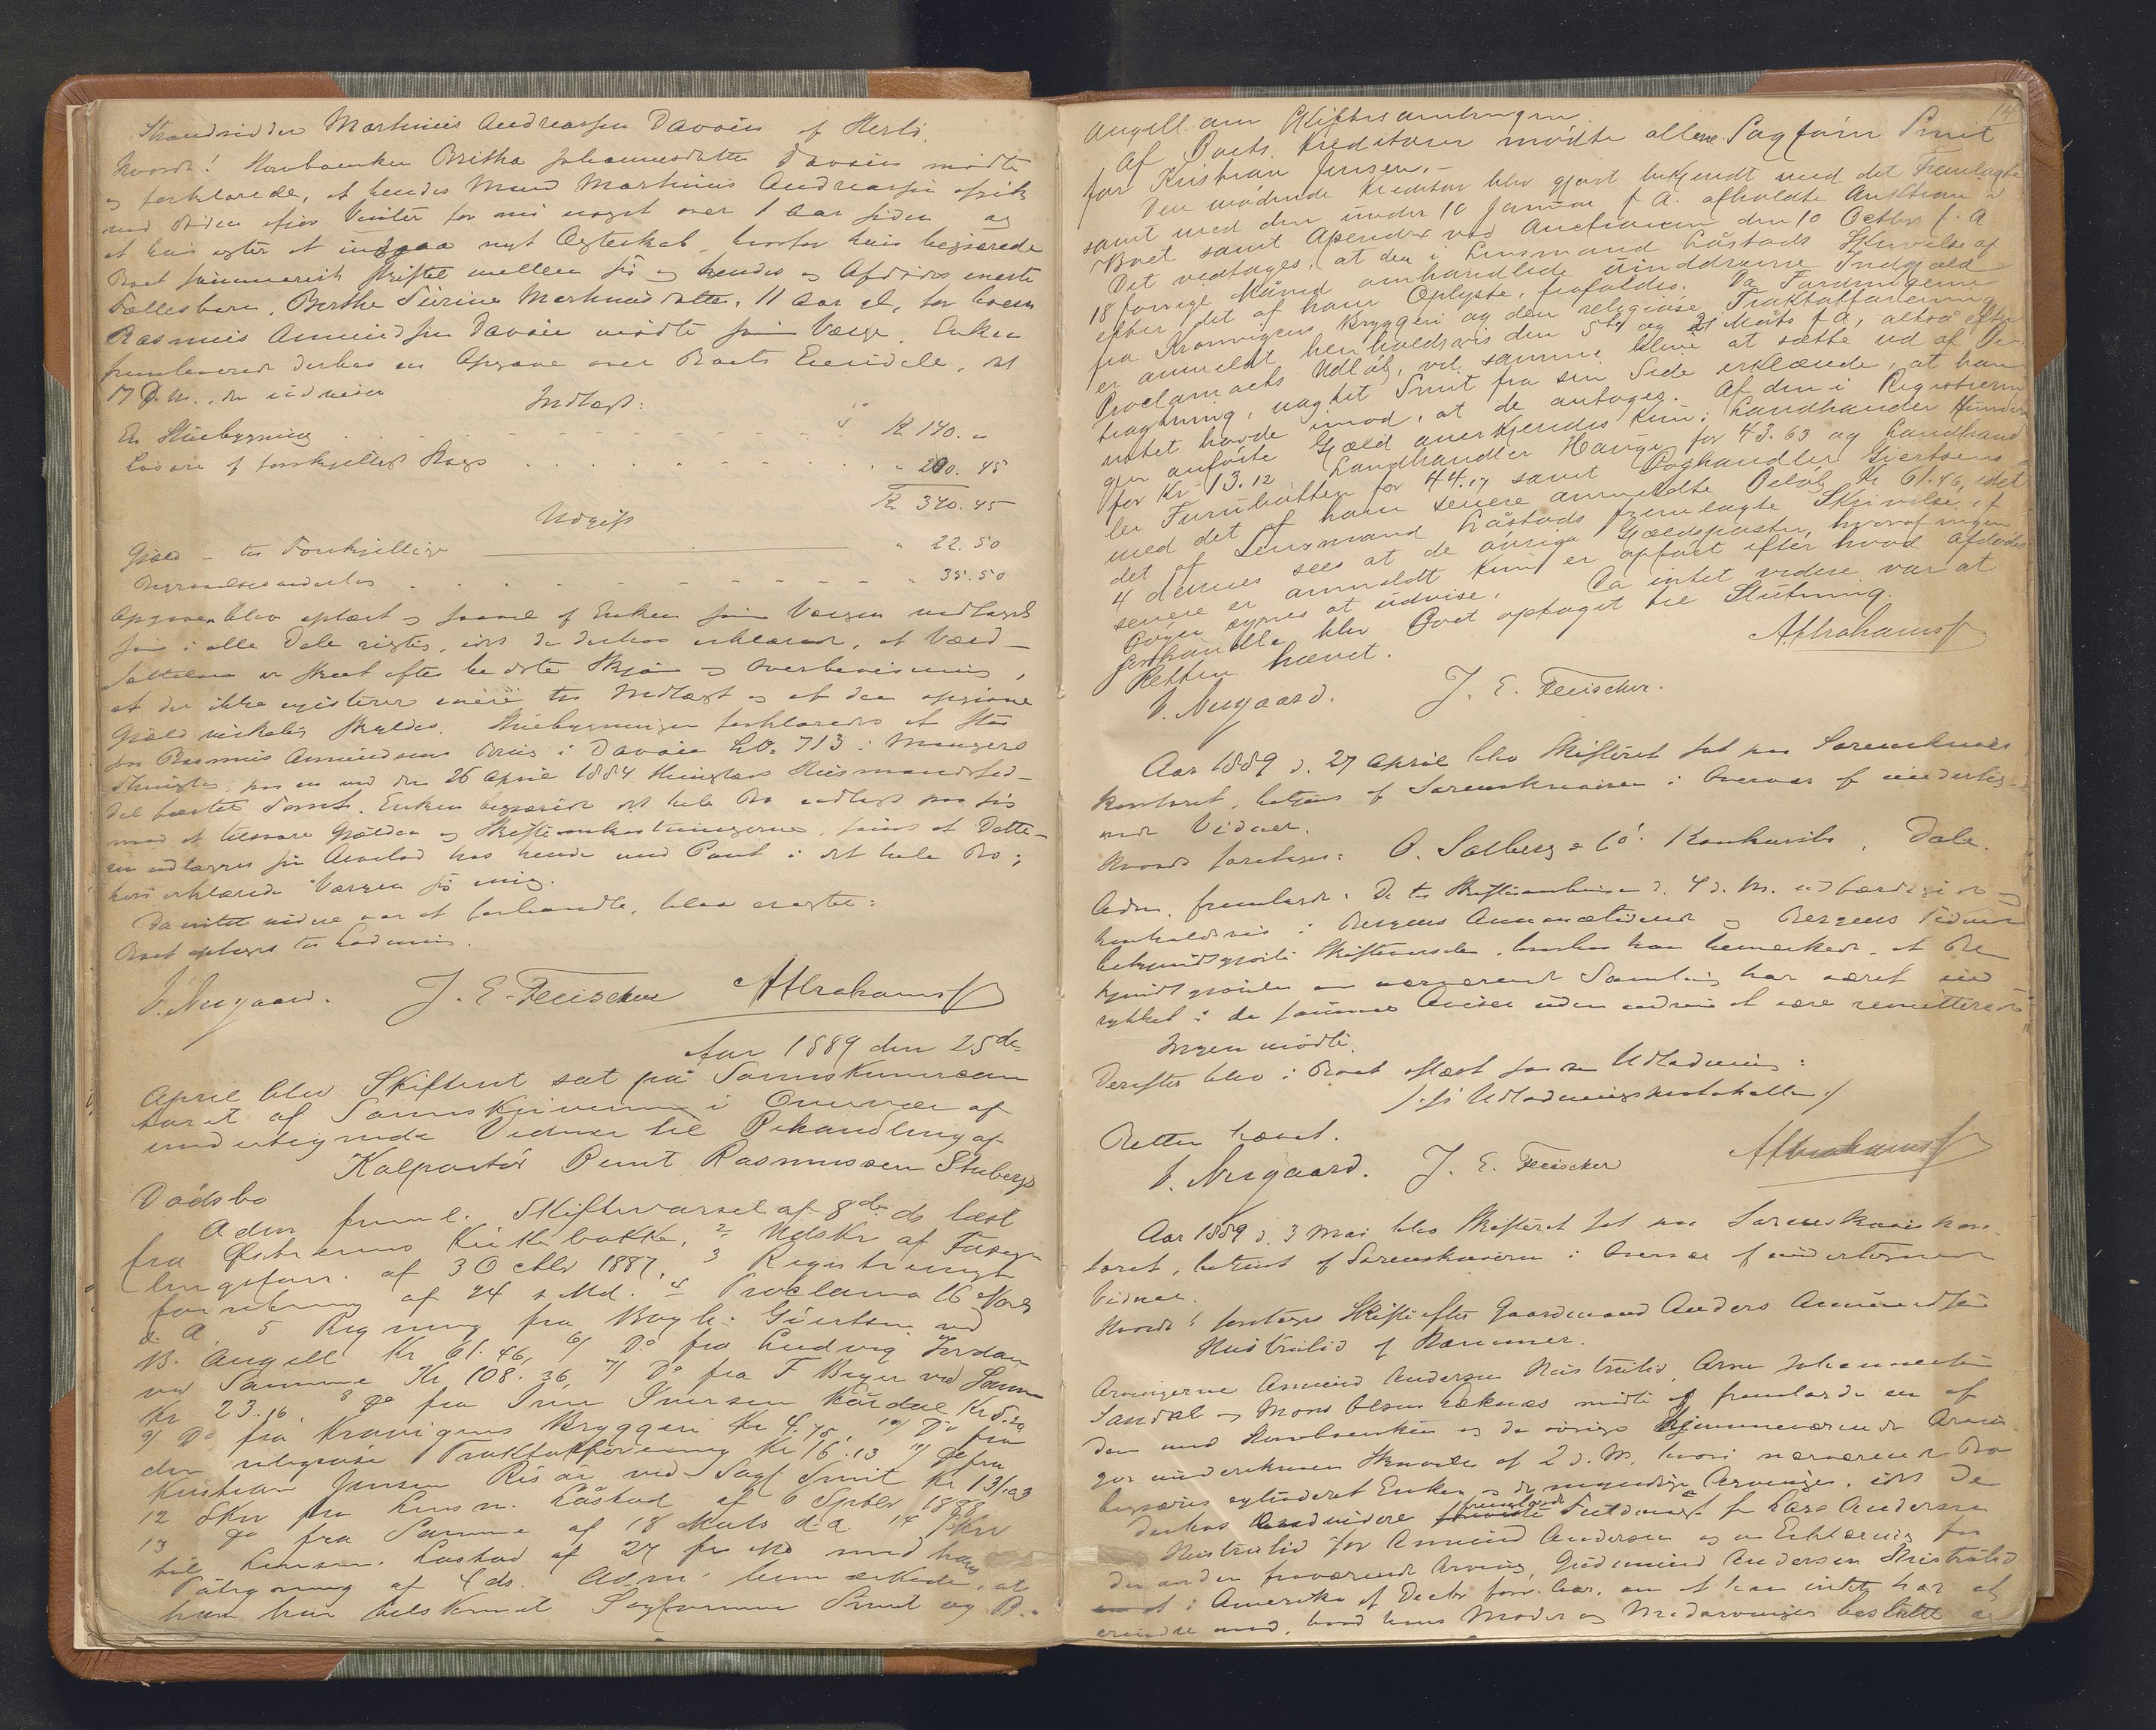 Strandsidder Martinus Andreassen Davøen af Herlø.
Hvorda! Havbaenken Britha Johannesdatter Davøen mødte
og forklarede, at hendes Mand Martinus Andreassen
ved Døden Vinter for nu noget over 1 Aar siden og
at hun agter at indgaa nyt Ægteskab, hvorfor hun begjærede
Boet summarisk skiftet mellem sig og hendes og Afdødes eneste
Fællesbarn, Berthe Sirine Martinusdatter, 11 Aar gl., for hvem
Rasmus Amundsen Davøen mødte som Værge. Enken
fremleverede derhos en Opgave over Boets Eiendele, dat
17 d. M., der udviser
Indtægt:
En Stuebygning . . . . Kr 140. "
Løsøre af forskjelligt Slags . . . . " 200. 45
Kr 340. 45
Udgift
Gjæld - til Forskjellige " 22. 50
Begravelsesomkostn. . . . . " 35. 50
Opgaven blev oplæst og saavel af Enken som Værgen vedtaget
som i alle Dele rigtig, idet de derhos erklærede, at Værd-
sættelsen er skeet efter bedste Skjøn og Overbevisning,
at der ikke existerer mere til Indtægt og at den opgivne
Gjæld virkelig skyldes. Stuebygningen forklaredes at staa
paa Rasmus Amundsens Brug i Davøen LNo. 713 i Mangers
Thinglag, paa en ved den 26 April 1884 thinglæst Huusmandssed-
del fæstet Tomt. Enken begjærede det hele Bo udlagt paa sig
mod at tilsvare Gjælden og Skifteomkostningerne, samt at Datte-
ren udlægges sin Arvelod hos hende med Pant i det hele Bo;
heri erklærede Værgen sig enig.
Da intet videre var at forhandle, blev eragtet:
Boet optages til Lodning.
J. Nygaard. J. E. Fleischer AAbrahams
Aar 1889 den 25de
April blev Skifteret sat på Sorenskriverkon
toret af Sorenskriveren i Overvær af
undertegnede Vidner til Behandling af
Kolportør Bernt Rasmussen Stubergs
Dødsbo
Adm freml. Skiftevarsel af 8de ds læst
fra Østrems Kirkebakke, 2 Udskr af Forseg
lingsforr. af 3 Octbr 1887, 3 Registrerings
forretning af 24 s Md. 4 Proclama 16 Novbr
d. A. 5 Regning fra Bogh. Giertsen ved
B. Angell Kr 61.46, 6/ Do fra Ludvig Jordan
ved Samme Kr 108.36, 7/ Do fra F Beyer ved Samme
Kr 23.16. 8 Do fra Iver Iversen Kårdal Kr 5.20
9/ Do fra Kronvigens Bryggeri Kr 4.75, 10/ Do fra
den religiøse Traktatforening Kr 16.13 11/ Do fra
Kristian Jensen Risøe ved Sagf Smit Kr 131.23
12 Skr fra Lensm. Låstad af 6 Septbr 1888
13 Do fra Samme af 18 Marts d.A. 14 Skr
til Lensm. Låstad af 27 f. Md med hans
Påtegning af 4 ds. Adm. bemærkede, at
han har tilskrevet Sagførerne Smit og B.
14
Angell om Skiftesamlingen.
Af Boets Kreditorer mødte allene Sagfører Smit
for Kristian Jensen. -
Den mødende Kreditor blev gjort bekjendt med det Fremlagte
samt med den under 10 Januar f A. afholdte Auktion i
Boet samt Apendix ved Auctionen den 10 Octbr f. A
Det vedtages, at den i Lensmand Låstads Skrivelse af
18 forrige Måned omhandlede uinddrevne Indgjæld
efter det af ham Oplyste, frafaldes. Da Fordringerne
fra Kronvigens Bryggeri og den religiøse Traktatforening
er anmeldt henholdsvis den 5te og 21 Marts f A, altså efter
Proclamaets Udløb, vil samme blive at sætte ud af Be-
tragtning, uagtet Smit fra sin Side erklærede, at han
intet havde imod, at de antages. Af den i Registrerin
gen anførte Gjæld anerkjendes kun: Landhandler
for Kr 13.12 Landhandler Hauge for 43.63 og Landhand
ler Furubotten for 44.17 samt Boghandler Giertsens
med det af ham senere anmeldte Beløb Kr 61.46, idet
det af Lensmand Låstads fremlagte Skrivelse af
4 dennes sees at de øvrige Gjældsposter, hvoraf ingen
senere er anmeldt kun er opført efter hvad Afdødes
Bøger synes at udvise. Da intet videre var at
forhandle blev Boet optaget til Slutning.
Retten hævet. AAbrahams
J. Nygaard. J. E. Fleischer.
Aar 1889 d. 27 April blev Skifteret sat paa Sorenskriver
kontoret, betjent af Sorenskriveren i Overvær af underteg-
nede Vidner.
Hvorda foretoges: O. Solberg & Co. Konkursbo, Dale.
Adm. fremlagde: De til Skiftesamlingen d. 4 d. M. udfærdigede
henholdsvis i Bergens Annoncetidende og Bergens Tidende
bekjendtgjorte Skiftevarsler, hvorhos han bemærkede, at Be
kjendtgjørelse om nærværende Samling har været ind
rykket i de samme Aviser uden endnu at være remitterede.
Ingen mødte.
Derefter blev i Boet afsagt saadan Udlodning:
/: se Udlodningsprotokollen :/
Retten hævet.
J. Nygaard. J. E. Fleischer AAbrahams
Aar 1889 d. 3 Mai blev Skifteret sat paa Sorenskriverkon
toret, betjent af Sorenskriveren i Overvær af undertegnede
Vidner.
Hvorda! foretoges Skifte efter Gaardmand Anders Amundsen
Hustrulid af Hammer.
Arvingerne Amund Andersen Hustrulid, Arne Johannessen
Sandal og Mons Olsen Eknæs mødte og fremlagde en af
dem med Havbaenken og de øvrige hjemmeværende Arvin
ger underskreven Skrivelse af 2 d. M., hvori nærværende Bo
begjæres extraderet Enken og de myndige Arvinger, idet de
derhos videre fremlagde Fuldmagt fra Lars Andersen
Hustrulid for Amund Andersen og en Erklæring fra
den anden fraværende Arving, Gudmund Andersen Hustrulid
i Amerika af Decbr forr. Aar, om at han intet har at
erindre mod, hvad hans Moder og Medarvinger beslutte